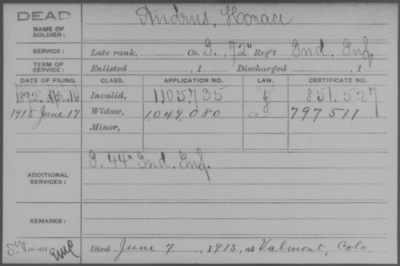 DEAD
NAME OF SOLDIER: Andrus, Horace
SERVICE: Late rank, Co. I, 72" Reg't Ind. Inf.
TERM OF SERVICE: Enlisted , 1 Discharged , 1
DATE OF FILING. CLASS. APPLICATION NO. LAW. CERTIFICATE NO.
1892 Apr. 16 Invalid, 1105735 851.527
1915 June 17 Widow, 1049.080 797511
Minor,
ADDITIONAL SERVICES: I. 44" Ind. Inf.
REMARKS:
Died June 7, 1915, at Valmont, Colo.